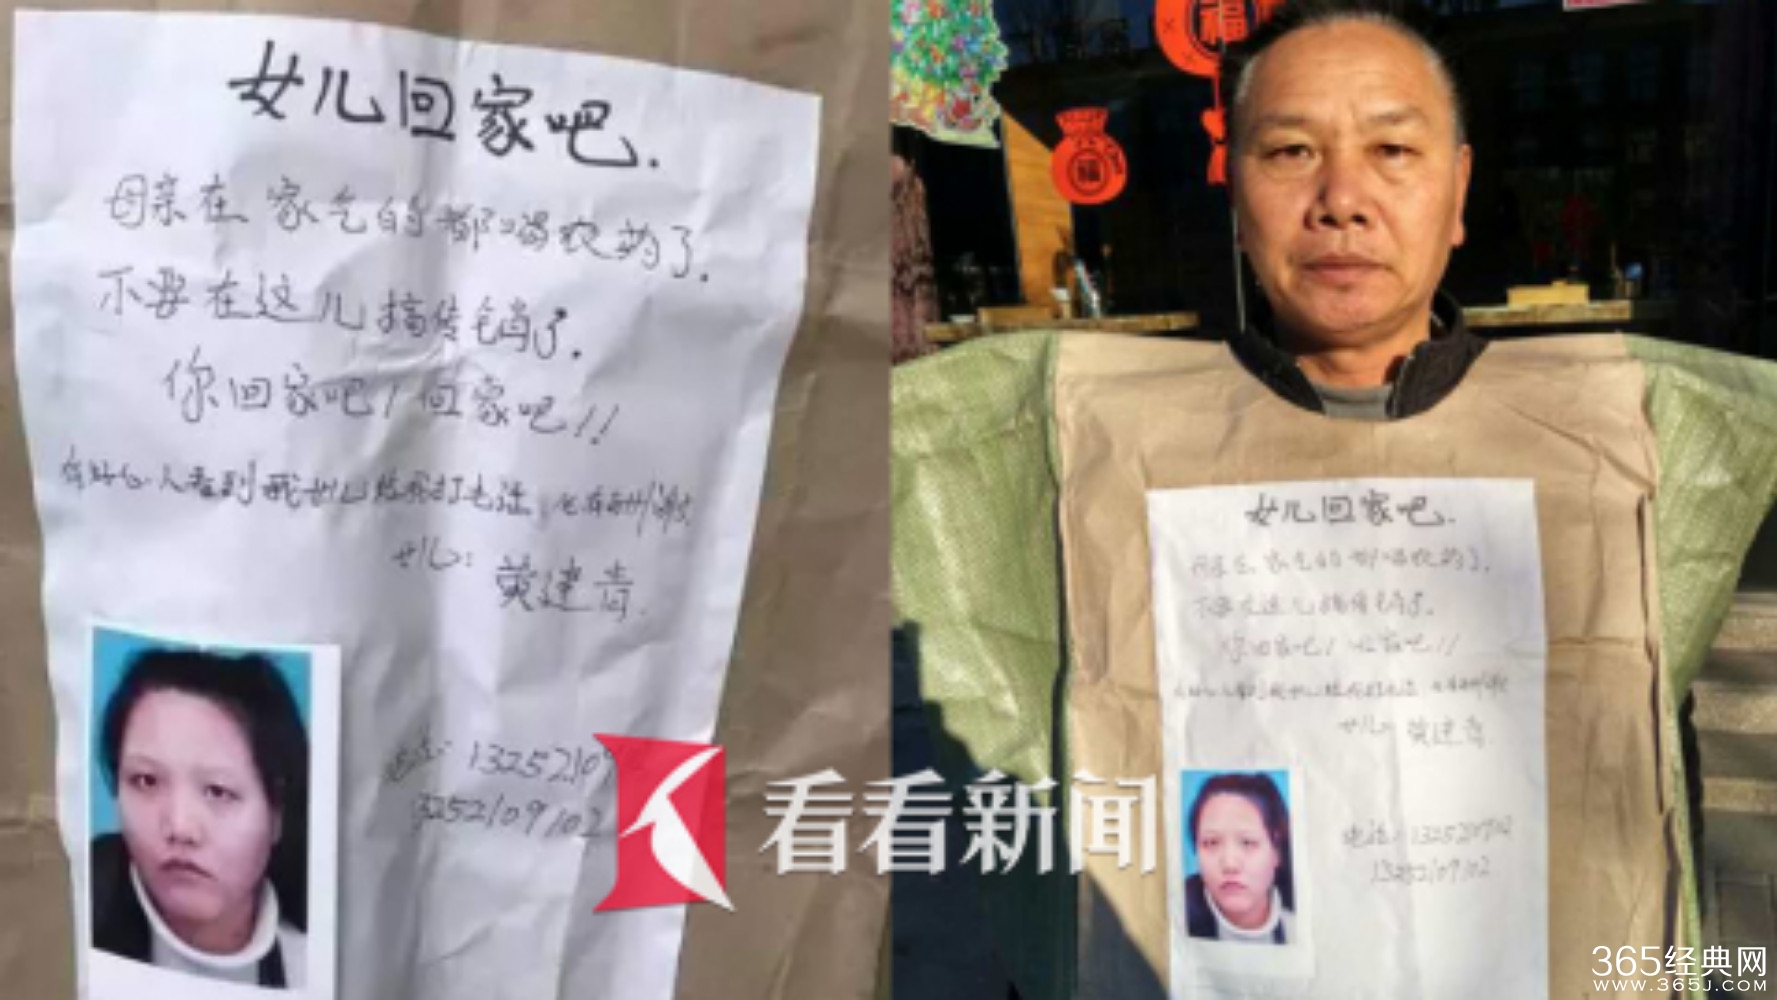 女儿回家吧.
母亲在家气的都喝农药了.
不要在这儿搞传销了.
你回家吧!回家吧!!
有好心人看到我女儿给我打电话
女儿: 黄建青.
电话: 132521091
13252109102
看看新闻
福
福
女儿回家吧.
母亲在家气的都喝农药了.
不要在这儿搞传销了.
你回家吧!回家吧!!
女儿: 黄建青.
电话:
13252109102
365经典网
www.365j.com